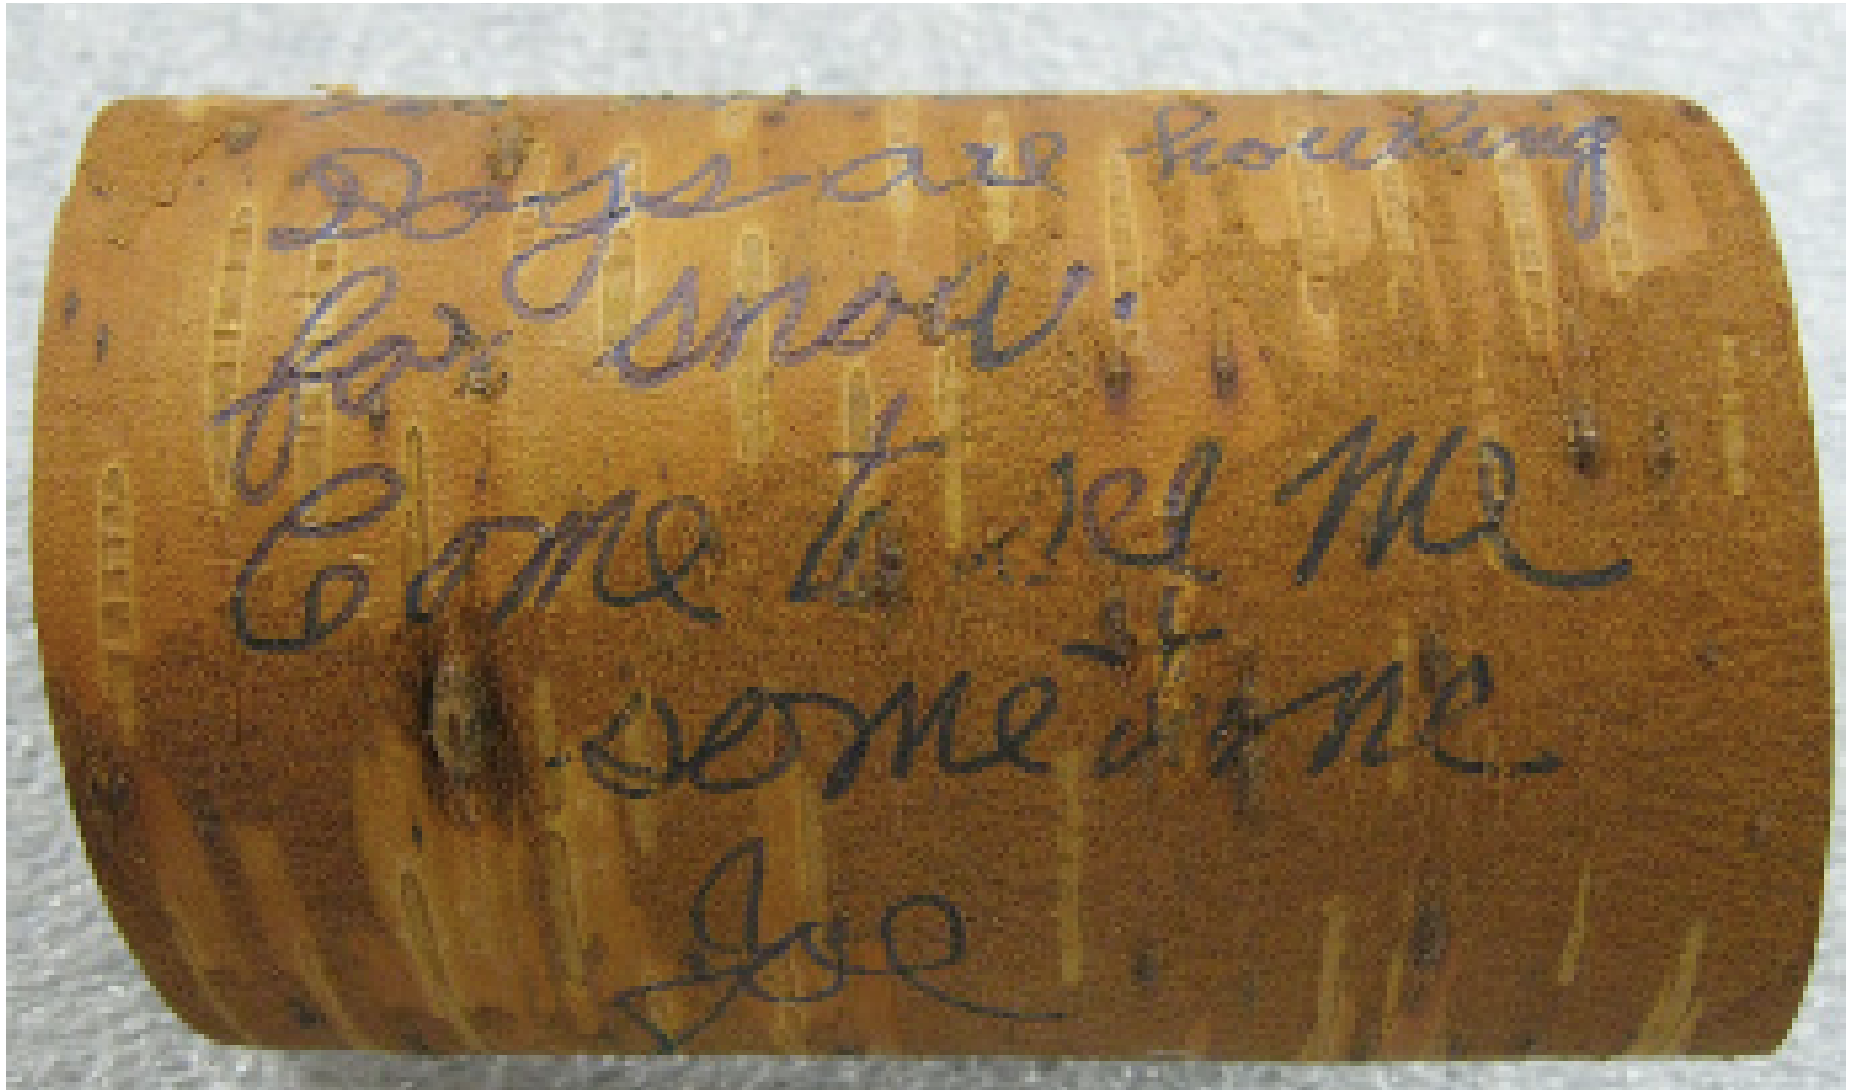 Dogs are howling
for snow.
Come to see me
sometime.
Joe